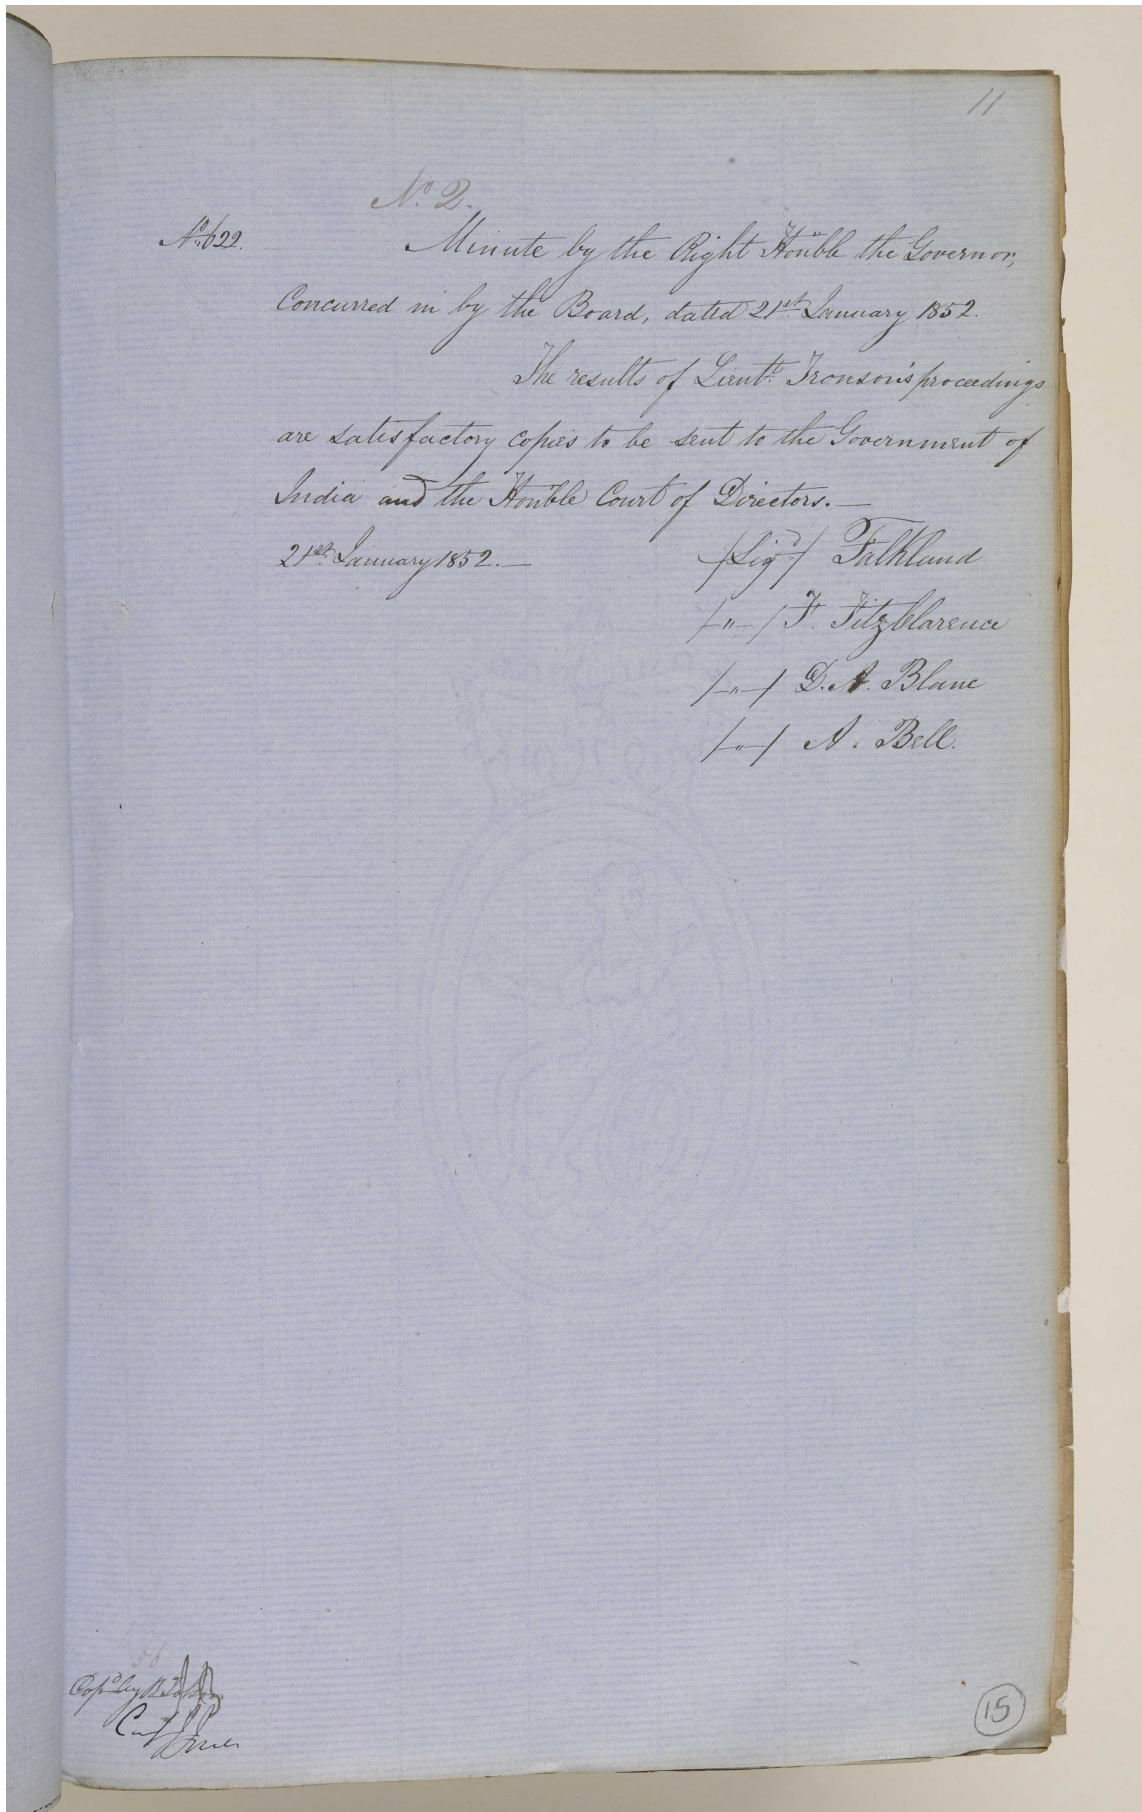 11
No. 2.
No. 622.
Minute by the Right Honble the Governor,
Concurred in by the Board, dated 21st January 1852.
The results of Lieutt. Tronson's proceedings
are satisfactory copies to be sent to the Government of
India and the Honble Court of Directors.—
21st January 1852.—
/Sigd/ Falkland
/-"-/ F. FitzClarence
/-"-/ D. A. Blane
/-"-/ A. Bell.
56
Copd by B
15